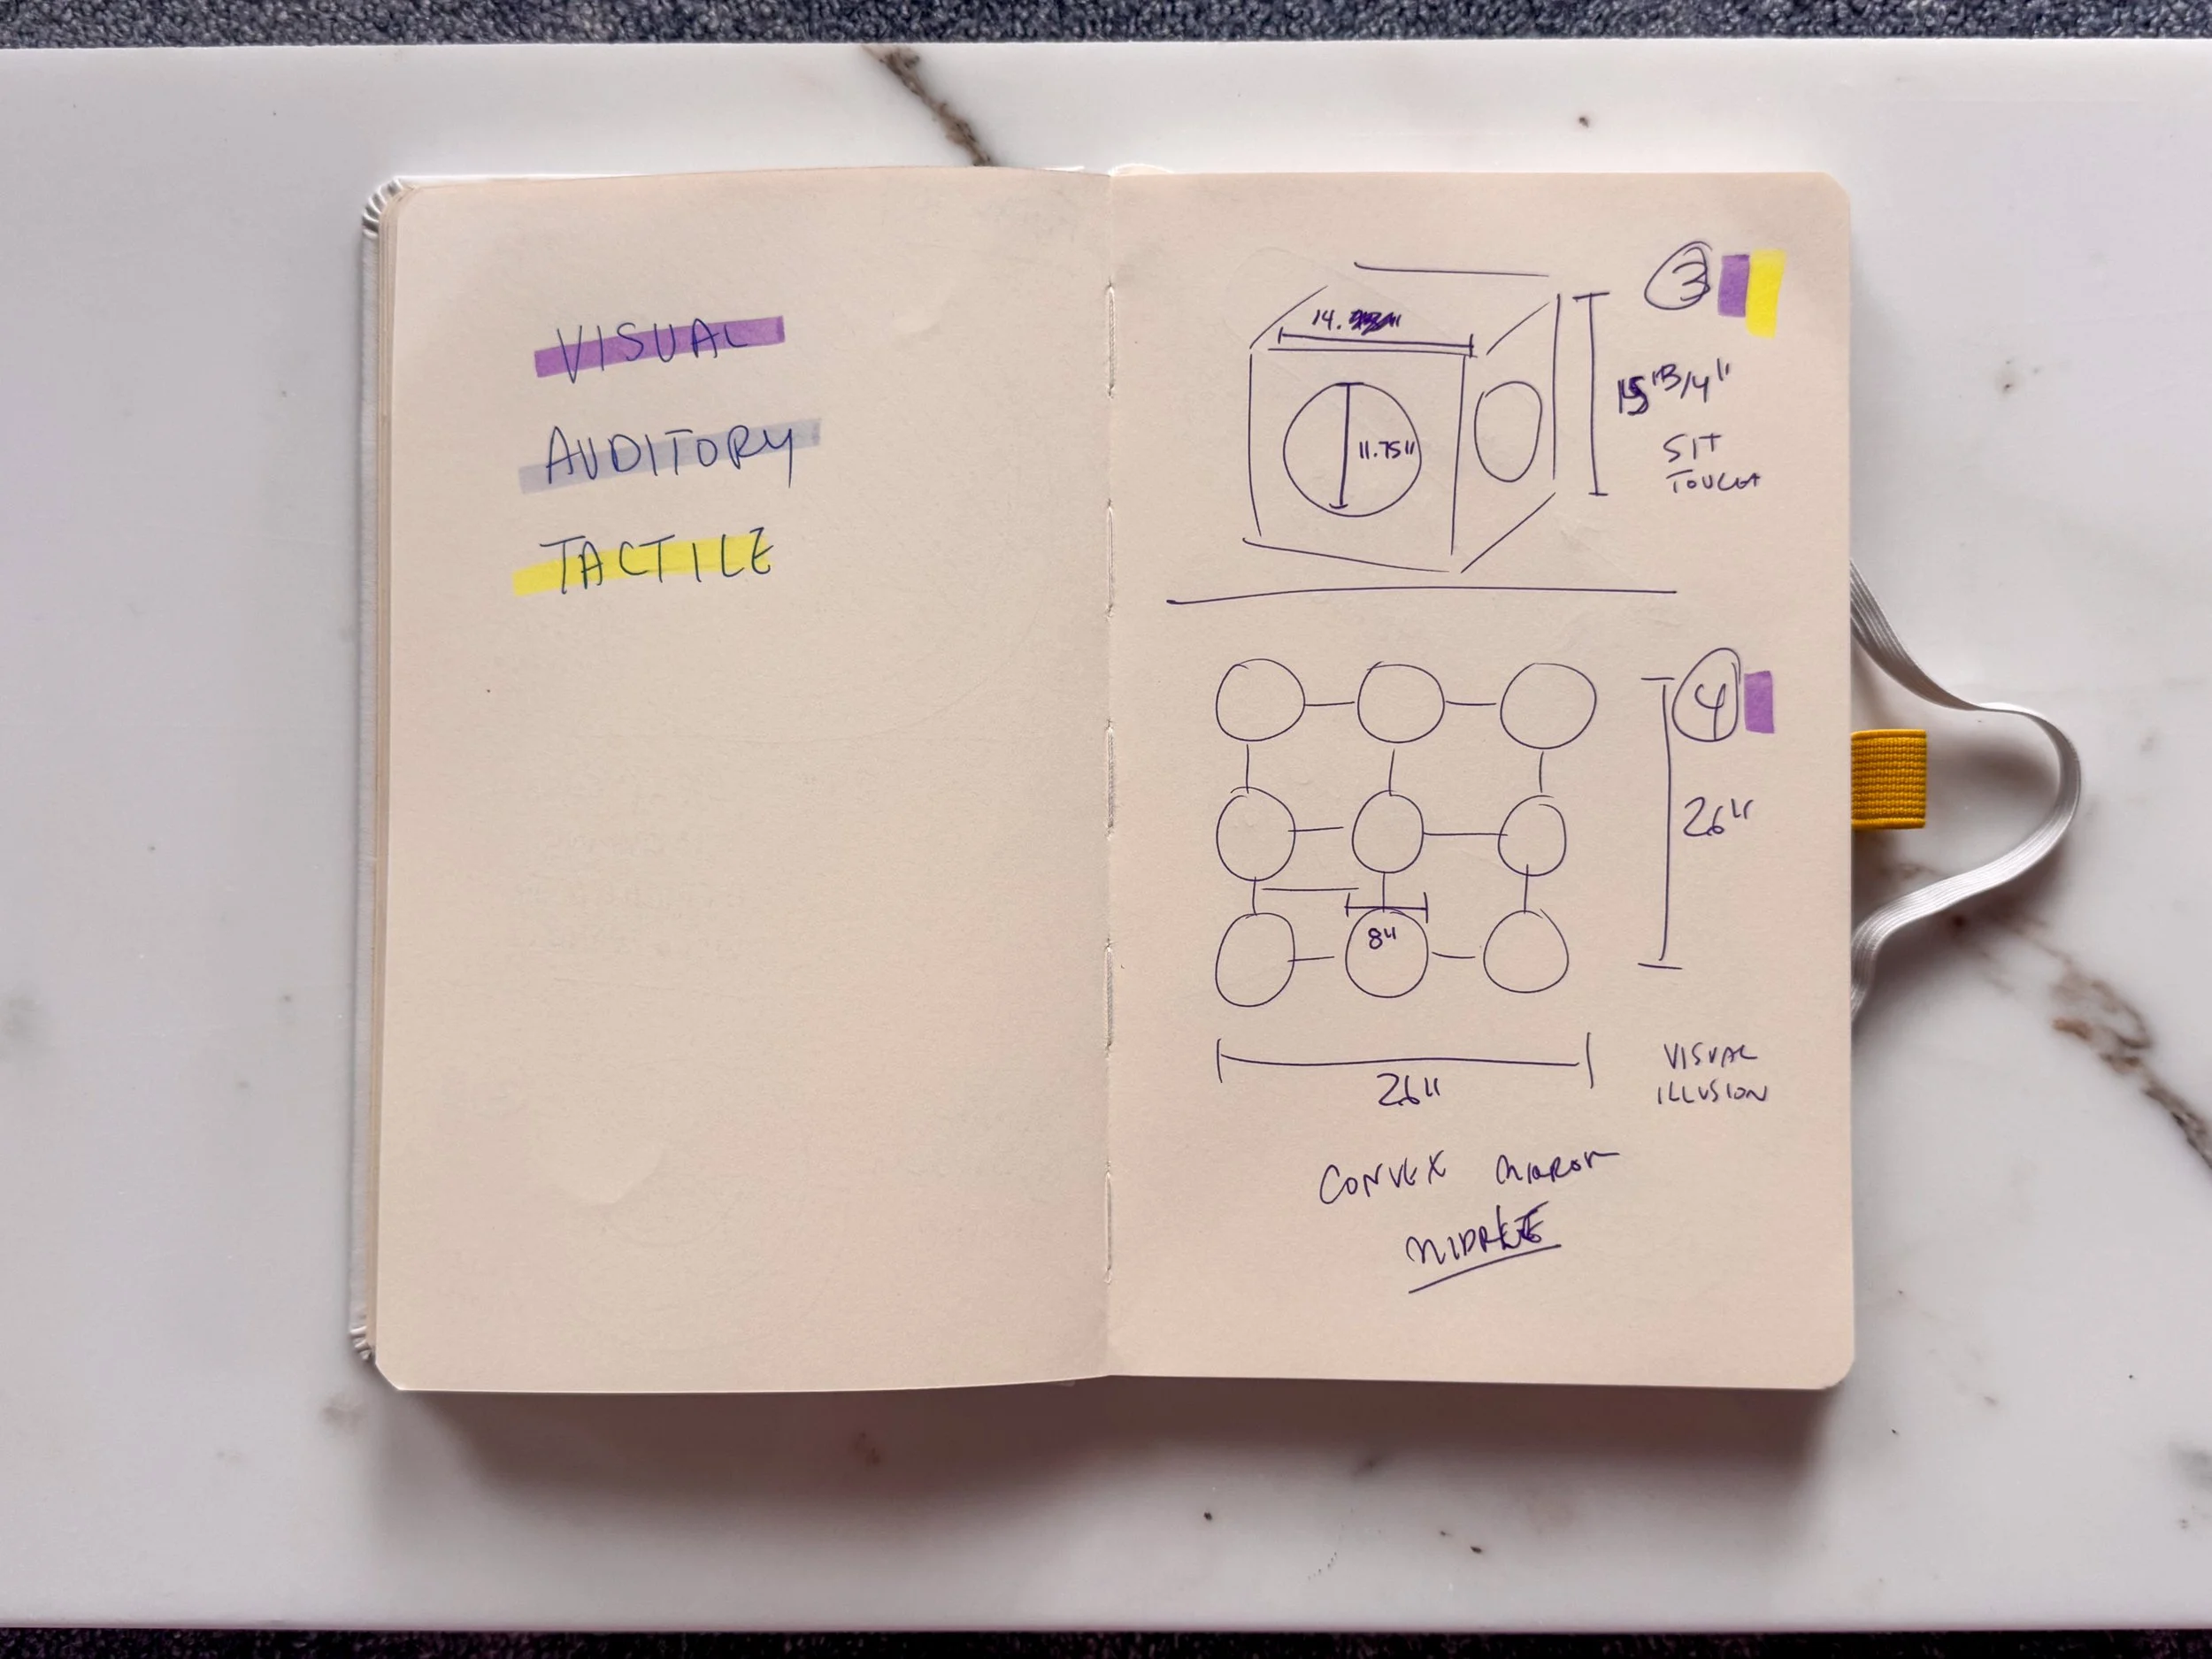 VISUAL
AUDITORY
TACTILE
3
14.
11.75"
3/4"
SIT
TOUCH
4
26"
8"
26"
VISUAL
ILLUSION
CONVEX MIRROR
MIDDLE